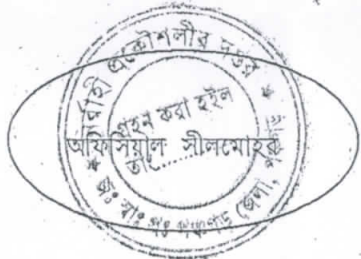 নির্বাহী প্রকৌশলীর দপ্তর
গ্রহন করা হইল
অফিসিয়াল সীলমোহর
তাং.........
জেলা,